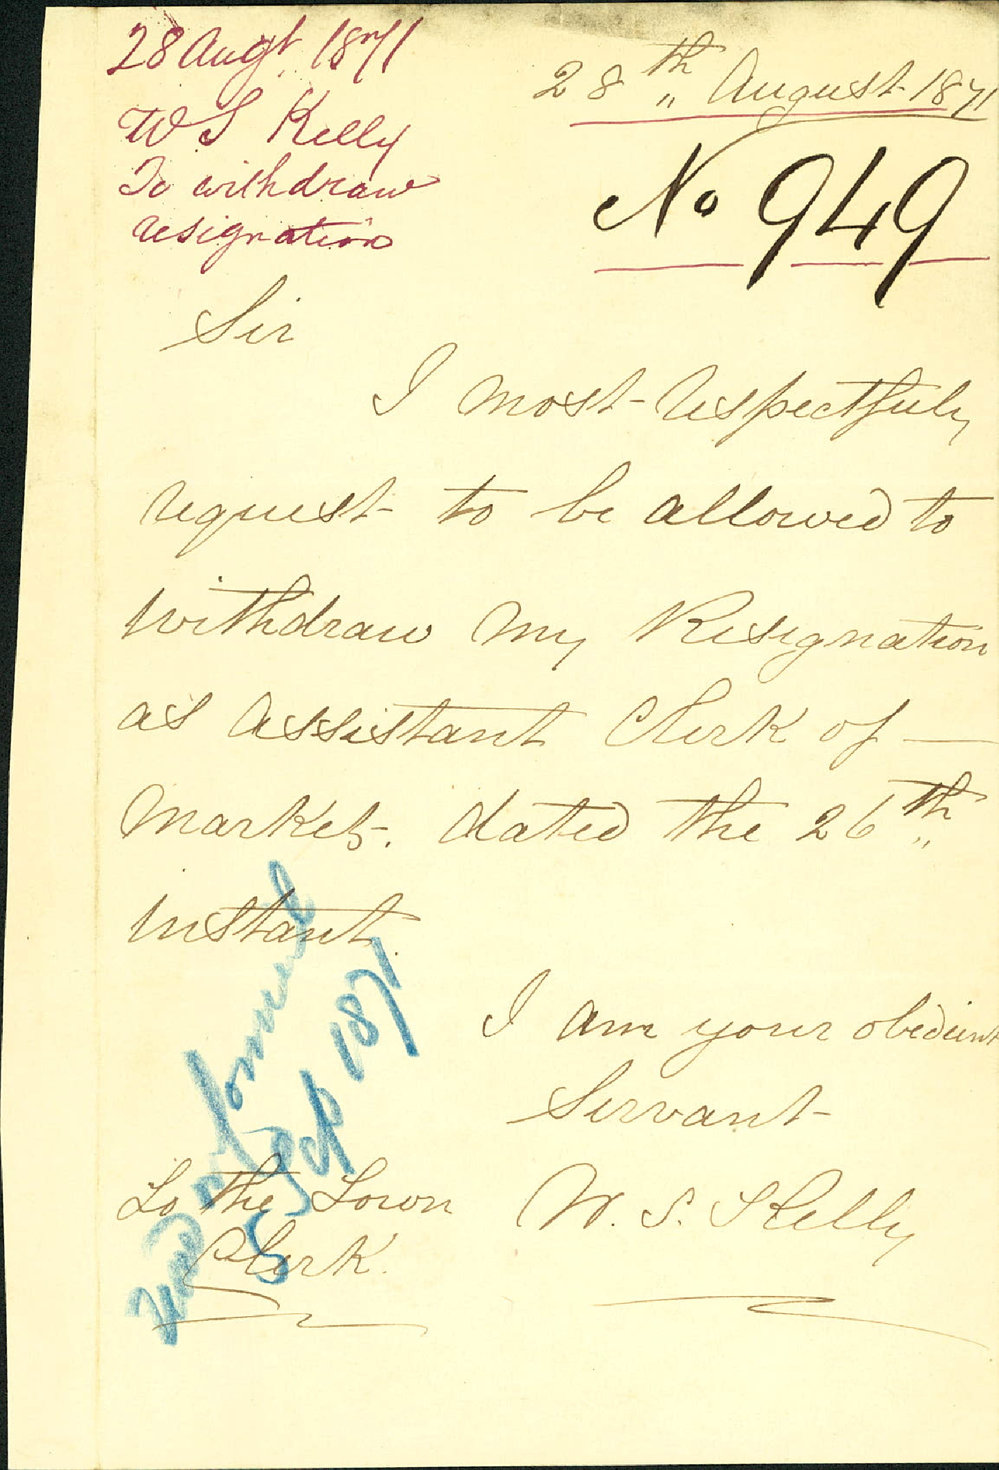 28 Augt. 1871
W S Kelly
To withdraw
resignation
28th August 1871
No 949
Sir
I most respectfuly
request to be allowed to
Withdraw My Resignation
as Assistant Clerk of —
Market. dated the 26th
instant.
I am your obedient
Servant
W. S. Kelly
To the Town
Clerk.
Read in Council
5 Sep 1871